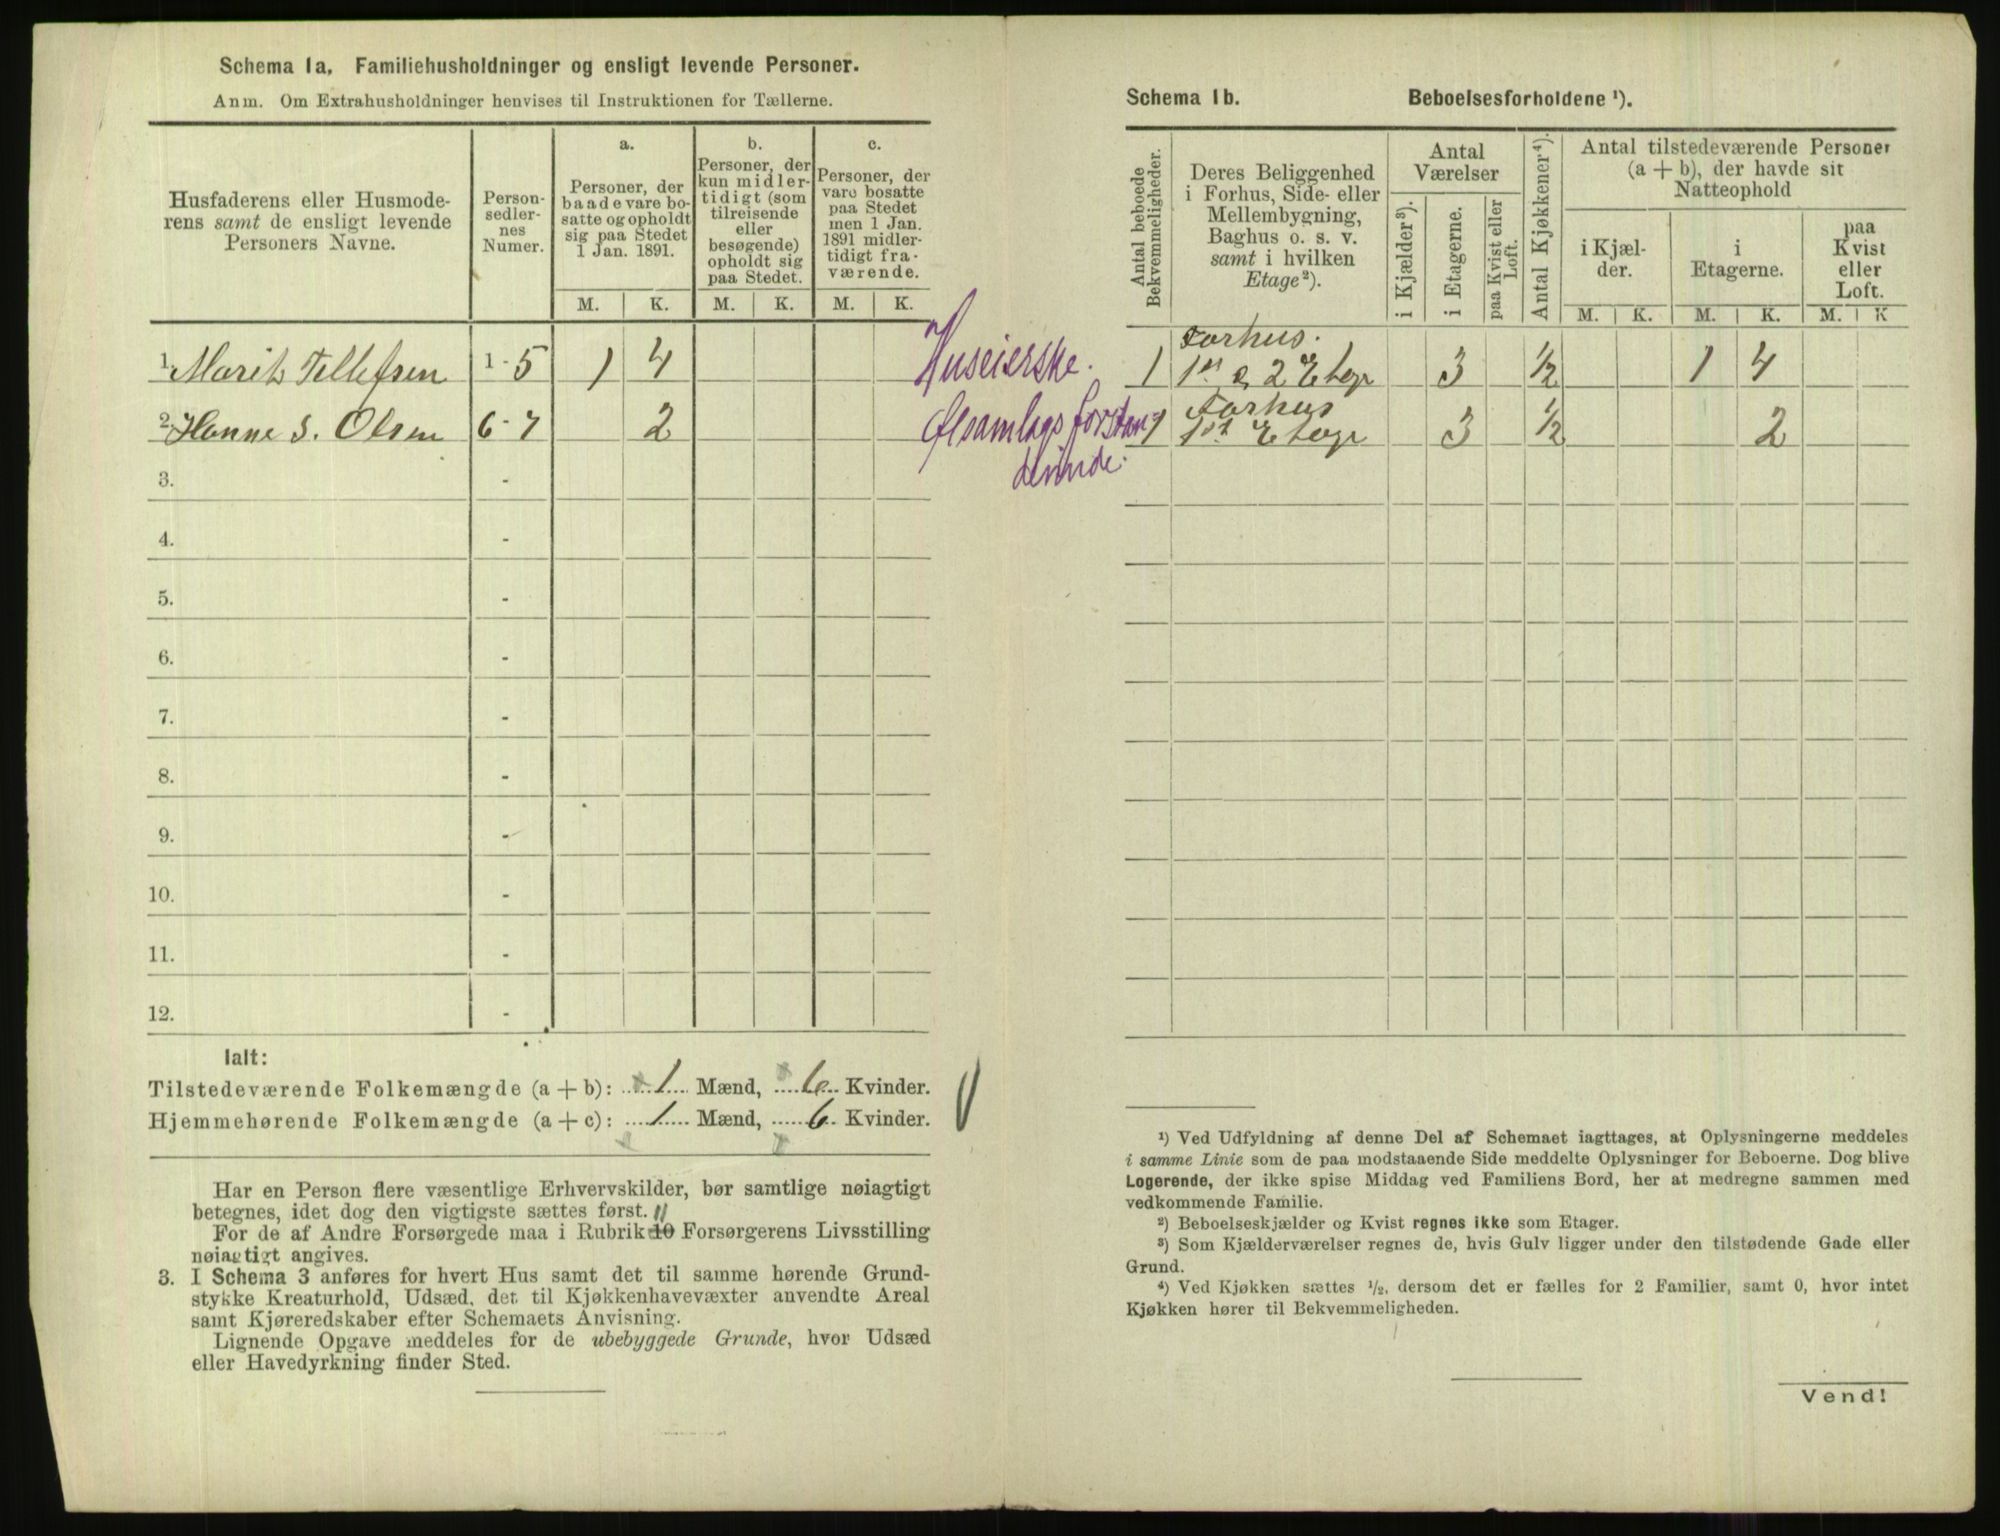 Schema 1a. Familiehusholdninger og ensligt levende Personer.
Anm. Om Extrahusholdninger henvises til Instruktionen for Tællerne.
Husfaderens eller Husmoderens samt de ensligt levende Personers Navne.
Personsedlernes Numer.
a.
Personer, der baade vare bosatte og opholdt sig paa Stedet 1 Jan. 1891.
b.
Personer, der kun midlertidigt (som tilreisende eller besøgende) opholdt sig paa Stedet.
c.
Personer, der vare bosatte paa Stedet men 1 Jan. 1891 midlertidigt fraværende.
M. K. M. K. M. K.
1. Marit Tellefsen 1-5 1 4 Huseierske.
2. Hanne S. Olsen 6-7 2 Ølsamlagsforstan-
derinde.
3. -
4. -
5. -
6. -
7. -
8. -
9. -
10. -
11. -
12. -
Ialt:
Tilstedeværende Folkemængde (a + b): 1 Mænd, 6 Kvinder.
Hjemmehørende Folkemængde (a + c): 1 Mænd, 6 Kvinder.
Har en Person flere væsentlige Erhvervskilder, bør samtlige nøiagtigt
betegnes, idet dog den vigtigste sættes først.
11
For de af Andre Forsørgede maa i Rubrik 10 Forsørgerens Livsstilling
nøiagtigt angives.
3. I Schema 3 anføres for hvert Hus samt det til samme hørende Grund-
stykke Kreaturhold, Udsæd, det til Kjøkkenhavevæxter anvendte Areal
samt Kjøreredskaber efter Schemaets Anvisning.
Lignende Opgave meddeles for de ubebyggede Grunde, hvor Udsæd
eller Havedyrkning finder Sted.
Schema 1b. Beboelsesforholdene ¹).
Antal beboede Bekvemmeligheder.
Deres Beliggenhed i Forhus, Side- eller Mellembygning, Baghus o. s. v. samt i hvilken Etage ²).
Antal Værelser
i Kjælder ³).
i Etagerne.
paa Kvist eller Loft.
Antal Kjøkkener ⁴).
Antal tilstedeværende Personer (a + b), der havde sit Natteophold
i Kjælder.
i Etagerne.
paa Kvist eller Loft.
M. K. M. K. M. K
Forhus.
1 1st & 2 Etage 3 ½ 1 4
Forhus
1 1st Etage 3 ½ 2
¹) Ved Udfyldning af denne Del af Schemaet iagttages, at Oplysningerne meddeles
i samme Linie som de paa modstaaende Side meddelte Oplysninger for Beboerne. Dog blive
Logerende, der ikke spise Middag ved Familiens Bord, her at medregne sammen med
vedkommende Familie.
²) Beboelseskjælder og Kvist regnes ikke som Etager.
³) Som Kjælderværelser regnes de, hvis Gulv ligger under den tilstødende Gade eller
Grund.
⁴) Ved Kjøkken sættes ½, dersom det er fælles for 2 Familier, samt 0, hvor intet
Kjøkken hører til Bekvemmeligheden.
Vend!